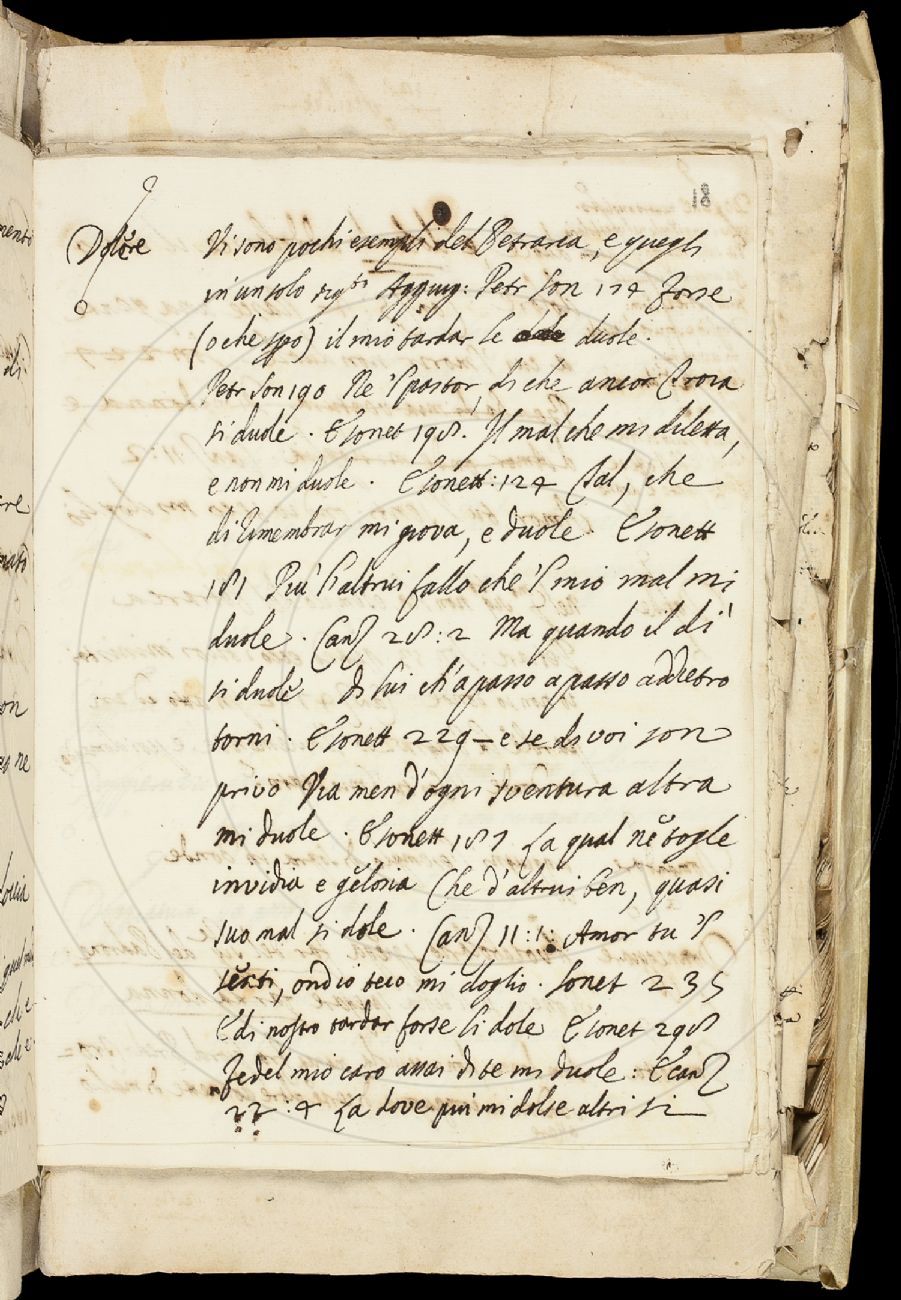 18
Dolere
Vi sono pochi esempli del Petrarca, e quegli
in un solo sig.to Aggiug: Petr Son 174 Forse
(o che spo) il mio tardar le duole.
Petr Son 190 Ne 'l pastor, di che ancor Troia
si duole. E Sonet 198. Il mal che mi diletta,
e non mi duole. E Sonett: 124 Tal, che
di rimembrar mi giova, e duole E Sonett
181 Più l'altrui fallo che 'l mio mal mi
duole. Canz 28:2 Ma quando il dì
si duole di lui ch'a passo a passo addietro
torni. E Sonett 229 - e se di voi son
privo Via men d'ogni sventura altra
mi duole. E Sonett 187 La qual ne togle
invidia e gelosia Che d'altrui ben, quasi
suo mal si dole. Canz 11:1: Amor tu 'l
senti, ond io teco mi doglio. Sonet 235
E di nostro tardar forse li dole E Sonet 298
Fedel mio caro assai di te mi duole: E canz
22:4 La dove piu mi dolse altri si